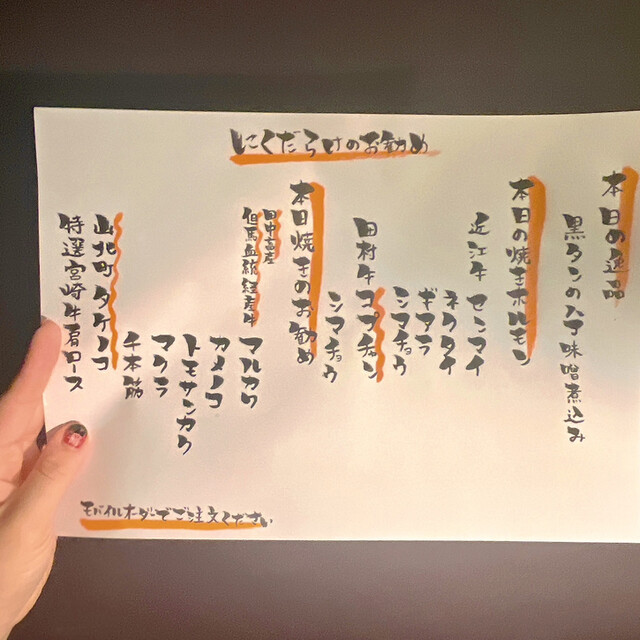 にくだらけのお勧め
本日の逸品
黒タンの八丁味噌煮込み
本日の焼きホルモン
近江牛 センマイ
ネクタイ
ギアラ
シマチョウ
田村牛 コプチャン
シマチョウ
本日焼きのお勧め
田中畜産
但馬血統経産牛
マルカワ
カメノコ
トモサンカク
マクラ
千本筋
山北町タケノコ
特選宮崎牛肩ロース
モバイルオーダーでご注文ください